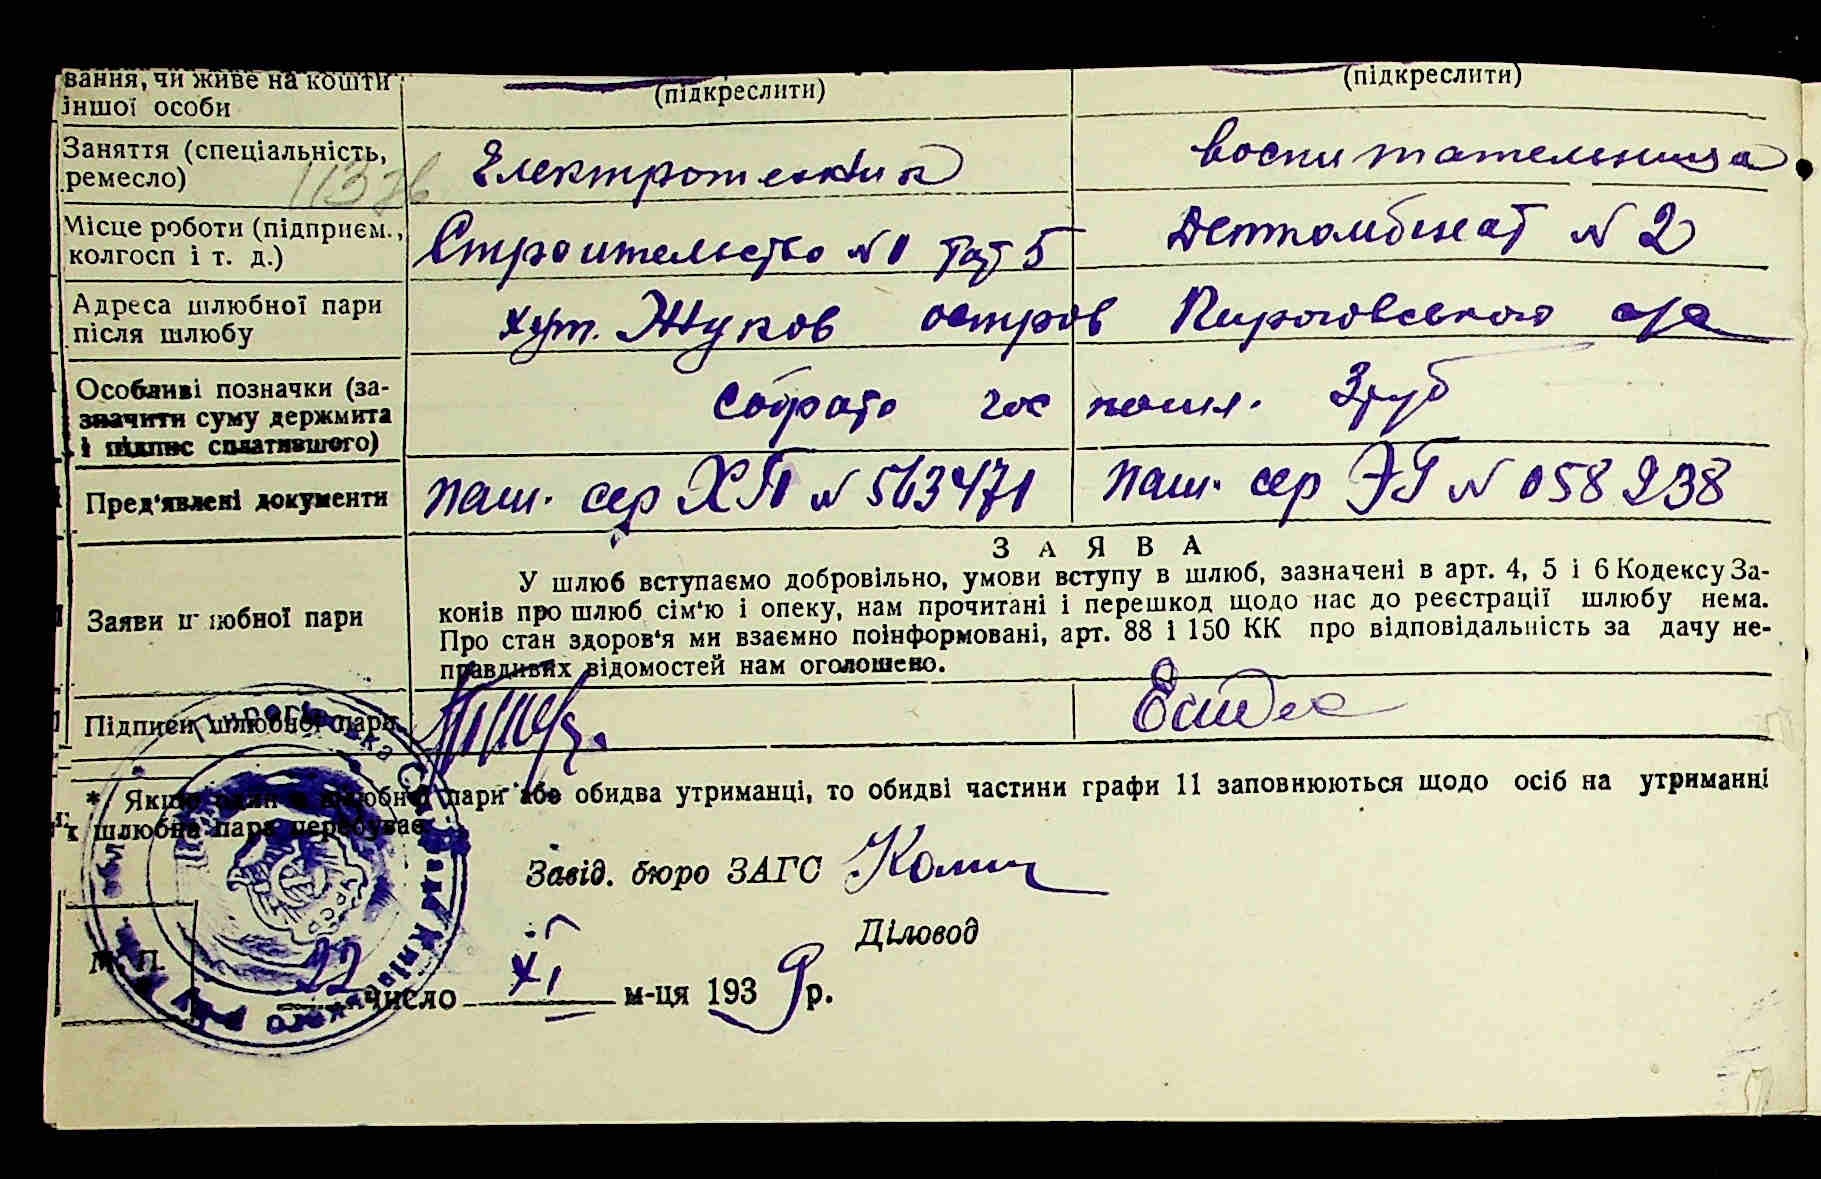 вання, чи живе на кошти
іншої особи
(підкреслити)
(підкреслити)
Заняття (спеціальність,
ремесло)
Електротехник
воспитательница
Місце роботи (підприєм.,
колгосп і т. д.)
Строительство №1
Деткомбинат №2
Адреса шлюбної пари
після шлюбу
хут. Жуков остров Пироговського с/р
Особливі позначки (за-
значити суму держмита
і підпис сплатившого)
Собрато гос пошл. 3 руб
Пред'явлені документи
паш. сер ХП № 563471
паш. сер ЭГ № 058238
ЗАЯВА
Заяви шлюбної пари
У шлюб вступаємо добровільно, умови вступу в шлюб, зазначені в арт. 4, 5 і 6 Кодексу За-
конів про шлюб сім'ю і опеку, нам прочитані і перешкод щодо нас до реєстрації шлюбу нема.
Про стан здоров'я ми взаємно поінформовані, арт. 88 і 150 КК про відповідальність за дачу не-
правдивих відомостей нам оголошено.
Підписи шлюбної пари
* Якщо один з шлюбної пари або обидва утриманці, то обидві частини графи 11 заповнюються щодо осіб на утриманні
х шлюбна пара перебуває
Завід. бюро ЗАГС
Діловод
М. П.
22 число XI м-ця 1939 р.